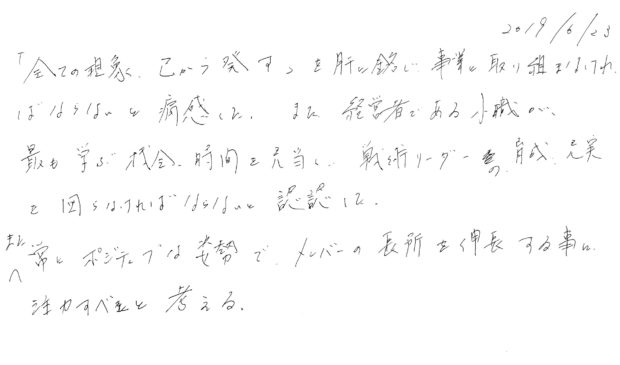 2019/6/23
「全ての現象、己から発す」を肝に銘じ、事業に取り組まなけれ
ばならないと痛感した。また経営者である小職が、
最も学ぶ機会、時間を充当し、戦術リーダーの育成、充実
を図らなければならないと認認した。
また常にポジティブな姿勢で、メンバーの長所を伸長する事に
注力すべきと考える。